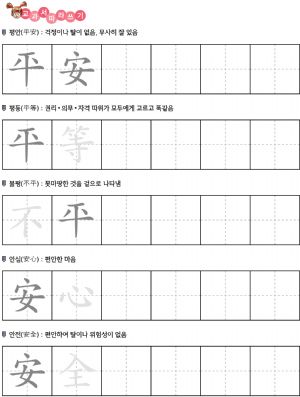 교과서 따라쓰기
평안(平安) : 걱정이나 탈이 없음, 무사히 잘 있음
平 安
평등(平等) : 권리·의무·자격 따위가 모두에게 고르고 똑같음
平 等
불평(不平) : 못마땅한 것을 겉으로 나타냄
不 平
안심(安心) : 편안한 마음
安 心
안전(安全) : 편안하여 탈이나 위험성이 없음
安 全